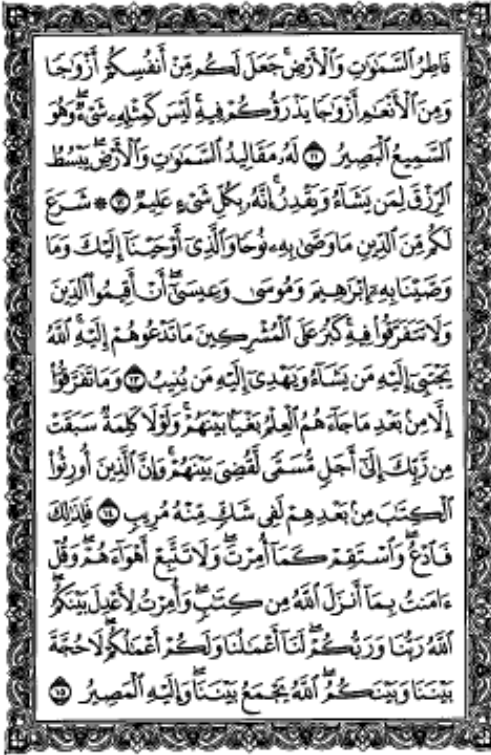 فَاطِرُ السَّمَٰوَٰتِ وَالْأَرْضِ ۚ جَعَلَ لَكُم مِّنْ أَنفُسِكُمْ أَزْوَٰجًا
وَمِنَ الْأَنْعَٰمِ أَزْوَٰجًا يَذْرَؤُكُمْ فِيهِ ۚ لَيْسَ كَمِثْلِهِۦ شَىْءٌ ۖ وَهُوَ
السَّمِيعُ الْبَصِيرُ ١١ لَهُۥ مَقَالِيدُ السَّمَٰوَٰتِ وَالْأَرْضِ ۖ يَبْسُطُ
الرِّزْقَ لِمَن يَشَآءُ وَيَقْدِرُ ۚ إِنَّهُۥ بِكُلِّ شَىْءٍ عَلِيمٌ ١٢ ۞ شَرَعَ
لَكُم مِّنَ الدِّينِ مَا وَصَّىٰ بِهِۦ نُوحًا وَالَّذِىٓ أَوْحَيْنَآ إِلَيْكَ وَمَا
وَصَّيْنَا بِهِۦٓ إِبْرَٰهِيمَ وَمُوسَىٰ وَعِيسَىٰٓ ۖ أَنْ أَقِيمُوا۟ الدِّينَ
وَلَا تَتَفَرَّقُوا۟ فِيهِ ۚ كَبُرَ عَلَى الْمُشْرِكِينَ مَا تَدْعُوهُمْ إِلَيْهِ ۚ اللَّهُ
يَجْتَبِىٓ إِلَيْهِ مَن يَشَآءُ وَيَهْدِىٓ إِلَيْهِ مَن يُنِيبُ ١٣ وَمَا تَفَرَّقُوٓا۟
إِلَّا مِنۢ بَعْدِ مَا جَآءَهُمُ الْعِلْمُ بَغْيًۢا بَيْنَهُمْ ۚ وَلَوْلَا كَلِمَةٌ سَبَقَتْ
مِن رَّبِّكَ إِلَىٰٓ أَجَلٍ مُّسَمًّى لَّقُضِىَ بَيْنَهُمْ ۚ وَإِنَّ الَّذِينَ أُورِثُوا۟
الْكِتَٰبَ مِنۢ بَعْدِهِمْ لَفِى شَكٍّ مِّنْهُ مُرِيبٍ ١٤ فَلِذَٰلِكَ
فَادْعُ ۖ وَاسْتَقِمْ كَمَآ أُمِرْتَ ۖ وَلَا تَتَّبِعْ أَهْوَآءَهُمْ ۖ وَقُلْ
ءَامَنتُ بِمَآ أَنزَلَ اللَّهُ مِن كِتَٰبٍ ۖ وَأُمِرْتُ لِأَعْدِلَ بَيْنَكُمُ ۖ
اللَّهُ رَبُّنَا وَرَبُّكُمْ ۖ لَنَآ أَعْمَٰلُنَا وَلَكُمْ أَعْمَٰلُكُمْ ۖ لَا حُجَّةَ
بَيْنَنَا وَبَيْنَكُمُ ۖ اللَّهُ يَجْمَعُ بَيْنَنَا ۖ وَإِلَيْهِ الْمَصِيرُ ١٥